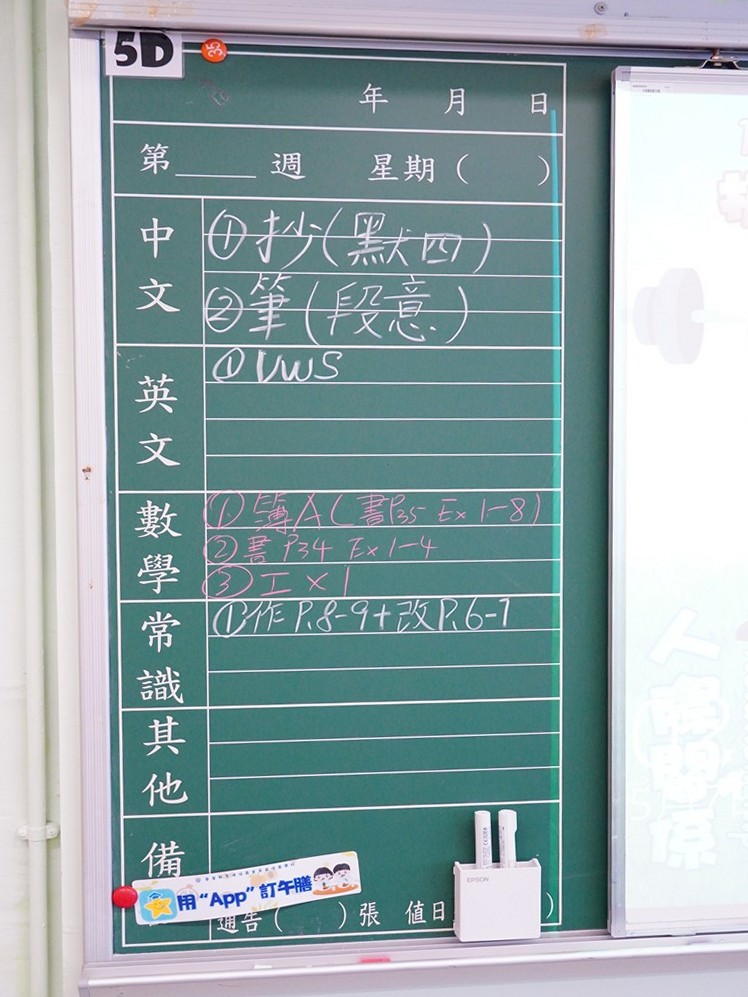 5D
35
年 月 日
第____週 星期( )
中文
①抄(默四)
②筆(段意)
英文
①VWS
數學
①簿A(書P35 Ex 1-8)
②書 P34 Ex 1-4
③工×1
常識
①作 P.8-9+改P.6-7
其他
備
用“App”訂午膳
通告( )張 值日 )
EPSON
人際關係